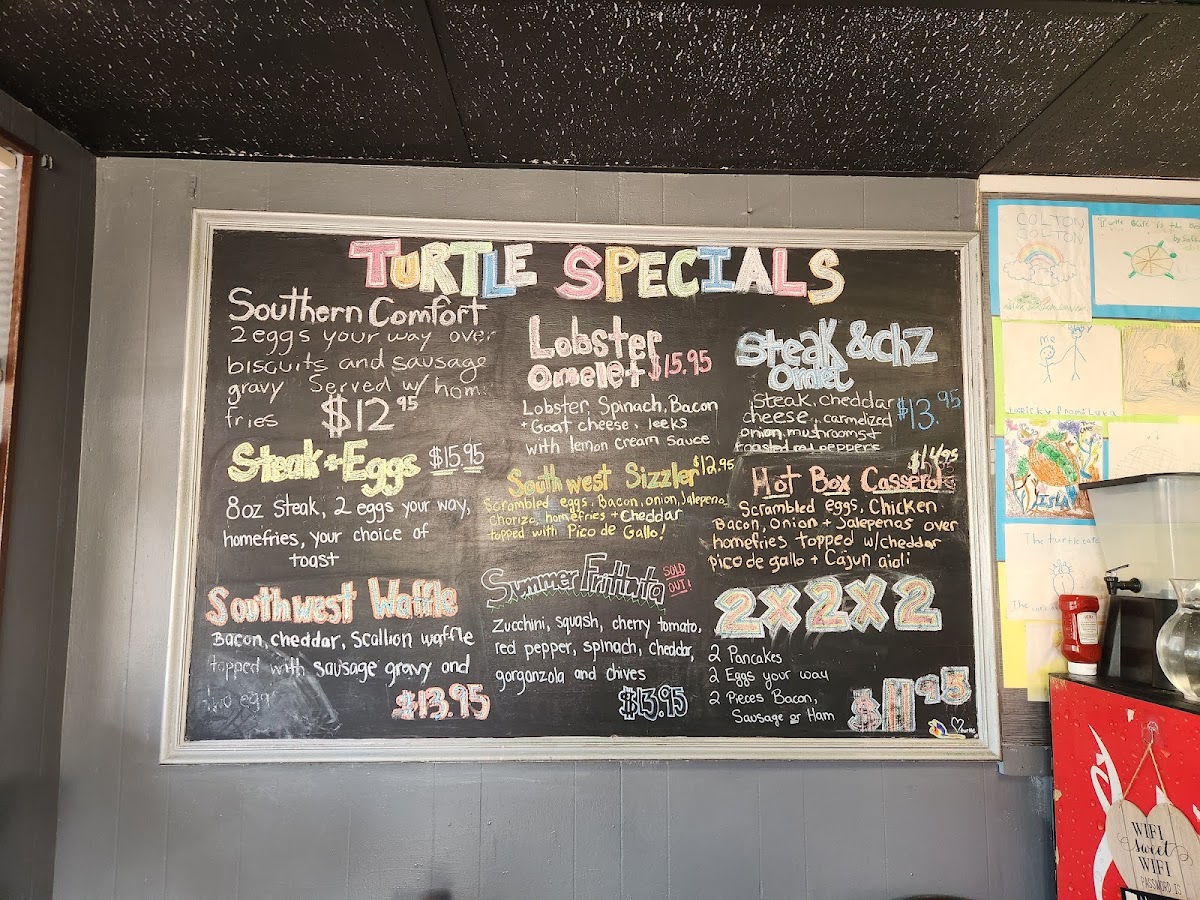 TURTLE SPECIALS
Southern Comfort
2 eggs your way over
biscuits and sausage
gravy Served w/ home
fries $12.95
Steak + Eggs $15.95
8oz steak, 2 eggs your way,
homefries, your choice of
toast
Southwest Waffle
Bacon, cheddar, scallion waffle
topped with sausage gravy and
two eggs
$13.95
Lobster
Omelet $15.95
Lobster, Spinach, Bacon
+ Goat cheese, leeks
with lemon cream sauce
Southwest Sizzler $12.95
Scrambled eggs, Bacon, onion, Jalepeno
Chorizo, homefries + Cheddar
topped with Pico de Gallo!
Summer Frittata SOLD
OUT!
Zucchini, squash, cherry tomato,
red pepper, spinach, cheddar,
gorgonzola and chives
$13.95
Steak & chz
Omlet
Steak, cheddar
cheese, carmelized
onion, mushrooms +
roasted red peppers
$13.95
$14.95
Hot Box Casserole
Scrambled eggs, Chicken
Bacon, Onion + Jalepenos over
homefries topped w/cheddar
pico de gallo + Cajun aioli
2x2x2
2 Pancakes
2 Eggs your way
2 Pieces Bacon,
Sausage or Ham
$11.95
COLTON
COLTON
Turtle Cafe is the
by
Me
Isla
The turtle cafe
The
WIFI
sweet
WIFI
PASSWORD IS